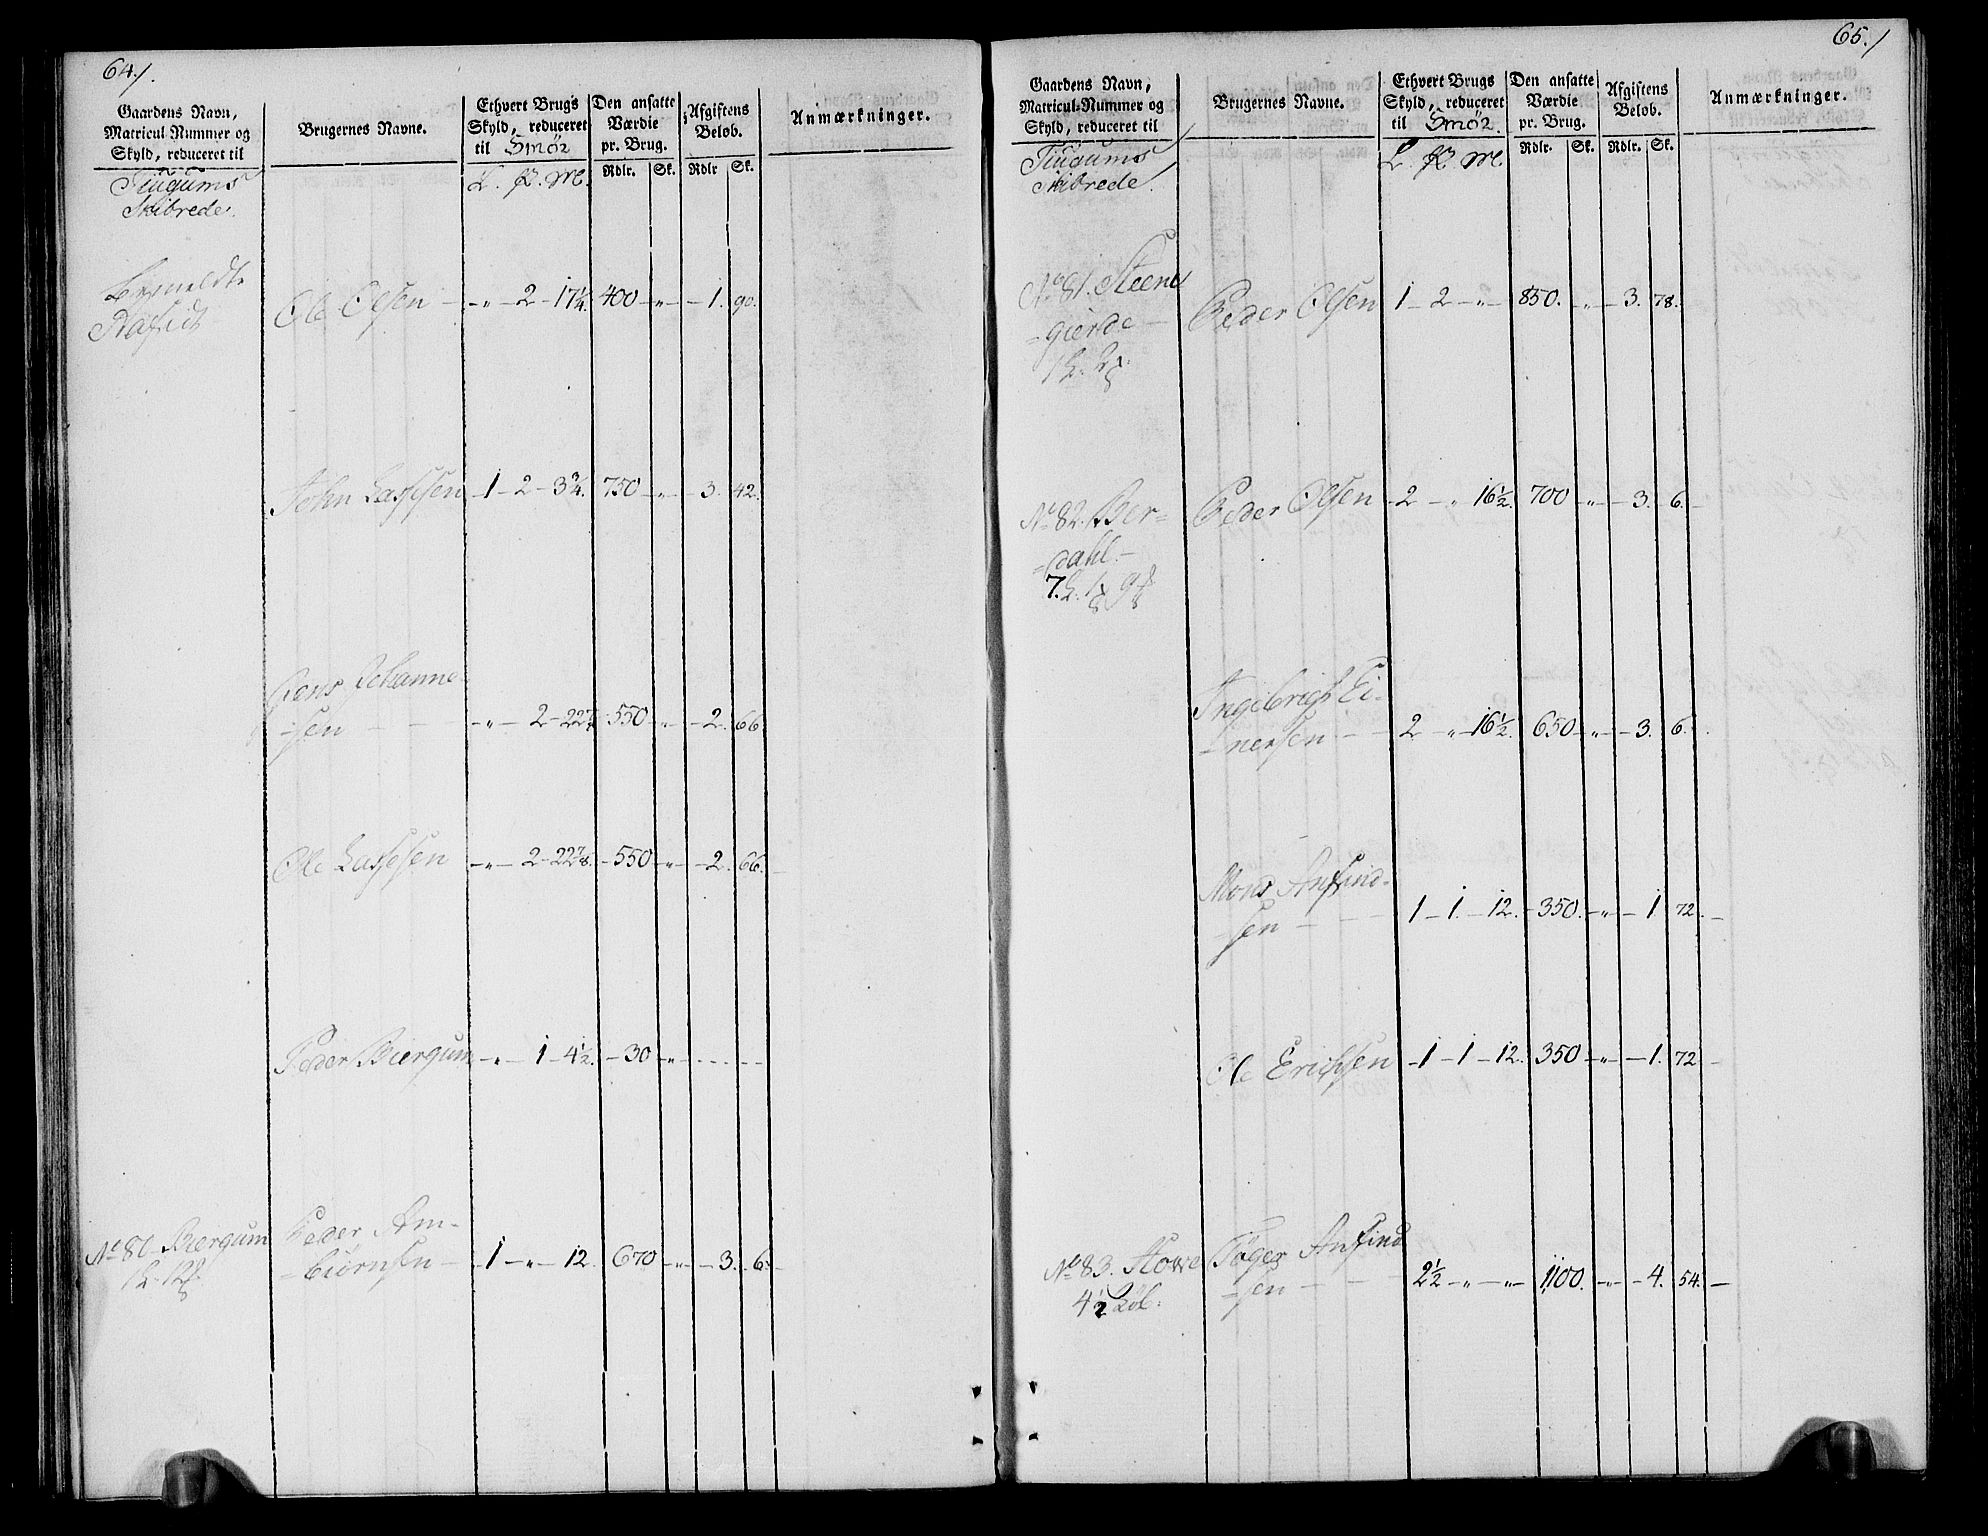 64./.
Gaardens Navn,
Matricul-Nummer og
Skyld, reduceret til
Brugernes Navne.
Ethvert Brugs
Skyld, reduceret
til Smör
Den ansatte
Værdie
pr. Brug.
Afgiftens
Beløb.
Anmærkninger.
Tiugums
Skibrede.
L. . Mk.
Rdlr. Sk. Rdlr Sk.
Ole Olsen - „ - 2 - 17¼ 400 - „ - 1. 90.
John Lassesen - 1 - 2 - 3¾. 750 - „ - 3. 42.
Jens Johanne-
-sen - „ - 2 - 22⅞ 550 - „ - 2. 66
Ole Lassesen - „ - 2 - 22⅞. - 550 - „ - 2. 66. -
Peder Biergum - „ - 1 - 4½. - 30 - „ - - - -
No 80 Biergum Peder Am-
1 L. 12
-biørnsen - 1 - „ - 12. 670 - „ - 3. 6. -
65./
Gaardens Navn,
Matricul-Nummer og
Skyld, reduceret til
Brugernes Navne.
Ethvert Brugs
Skyld, reduceret
til Smör.
Den ansatte
Værdie
pr. Brug.
Afgiftens
Beløb.
Anmærkninger.
Tiugums
Skibrede.
L. . Mk.
Rdlr. Sk. Rdlr. Sk.
No 81. Steens
-gierde -
1 L. 2
Peder Olsen 1 - 2 - „ - 850. „ - 3. 78.
No 82. Ber-
-dahl. -
7. L. 1 9
Peder Olsen - 2 - „ 16½. 700 - „ - 3. 6. -
Ingebrigt Ei-
-nersen - - 2 - „ - 16½. 650 - „ - 3. 6. .
Mons Anfind-
-sen - 1 - 1. - 12. - 350. - „ - 1. 72. -
Ole Erichsen - 1 - 1 - 12. 350 - „ - 1. 72 -
No 83. Howe
4½ Løb.
Tøger Anfind
-sen - 2½ - „ - „ - 1100. - „ - 4. 54. -